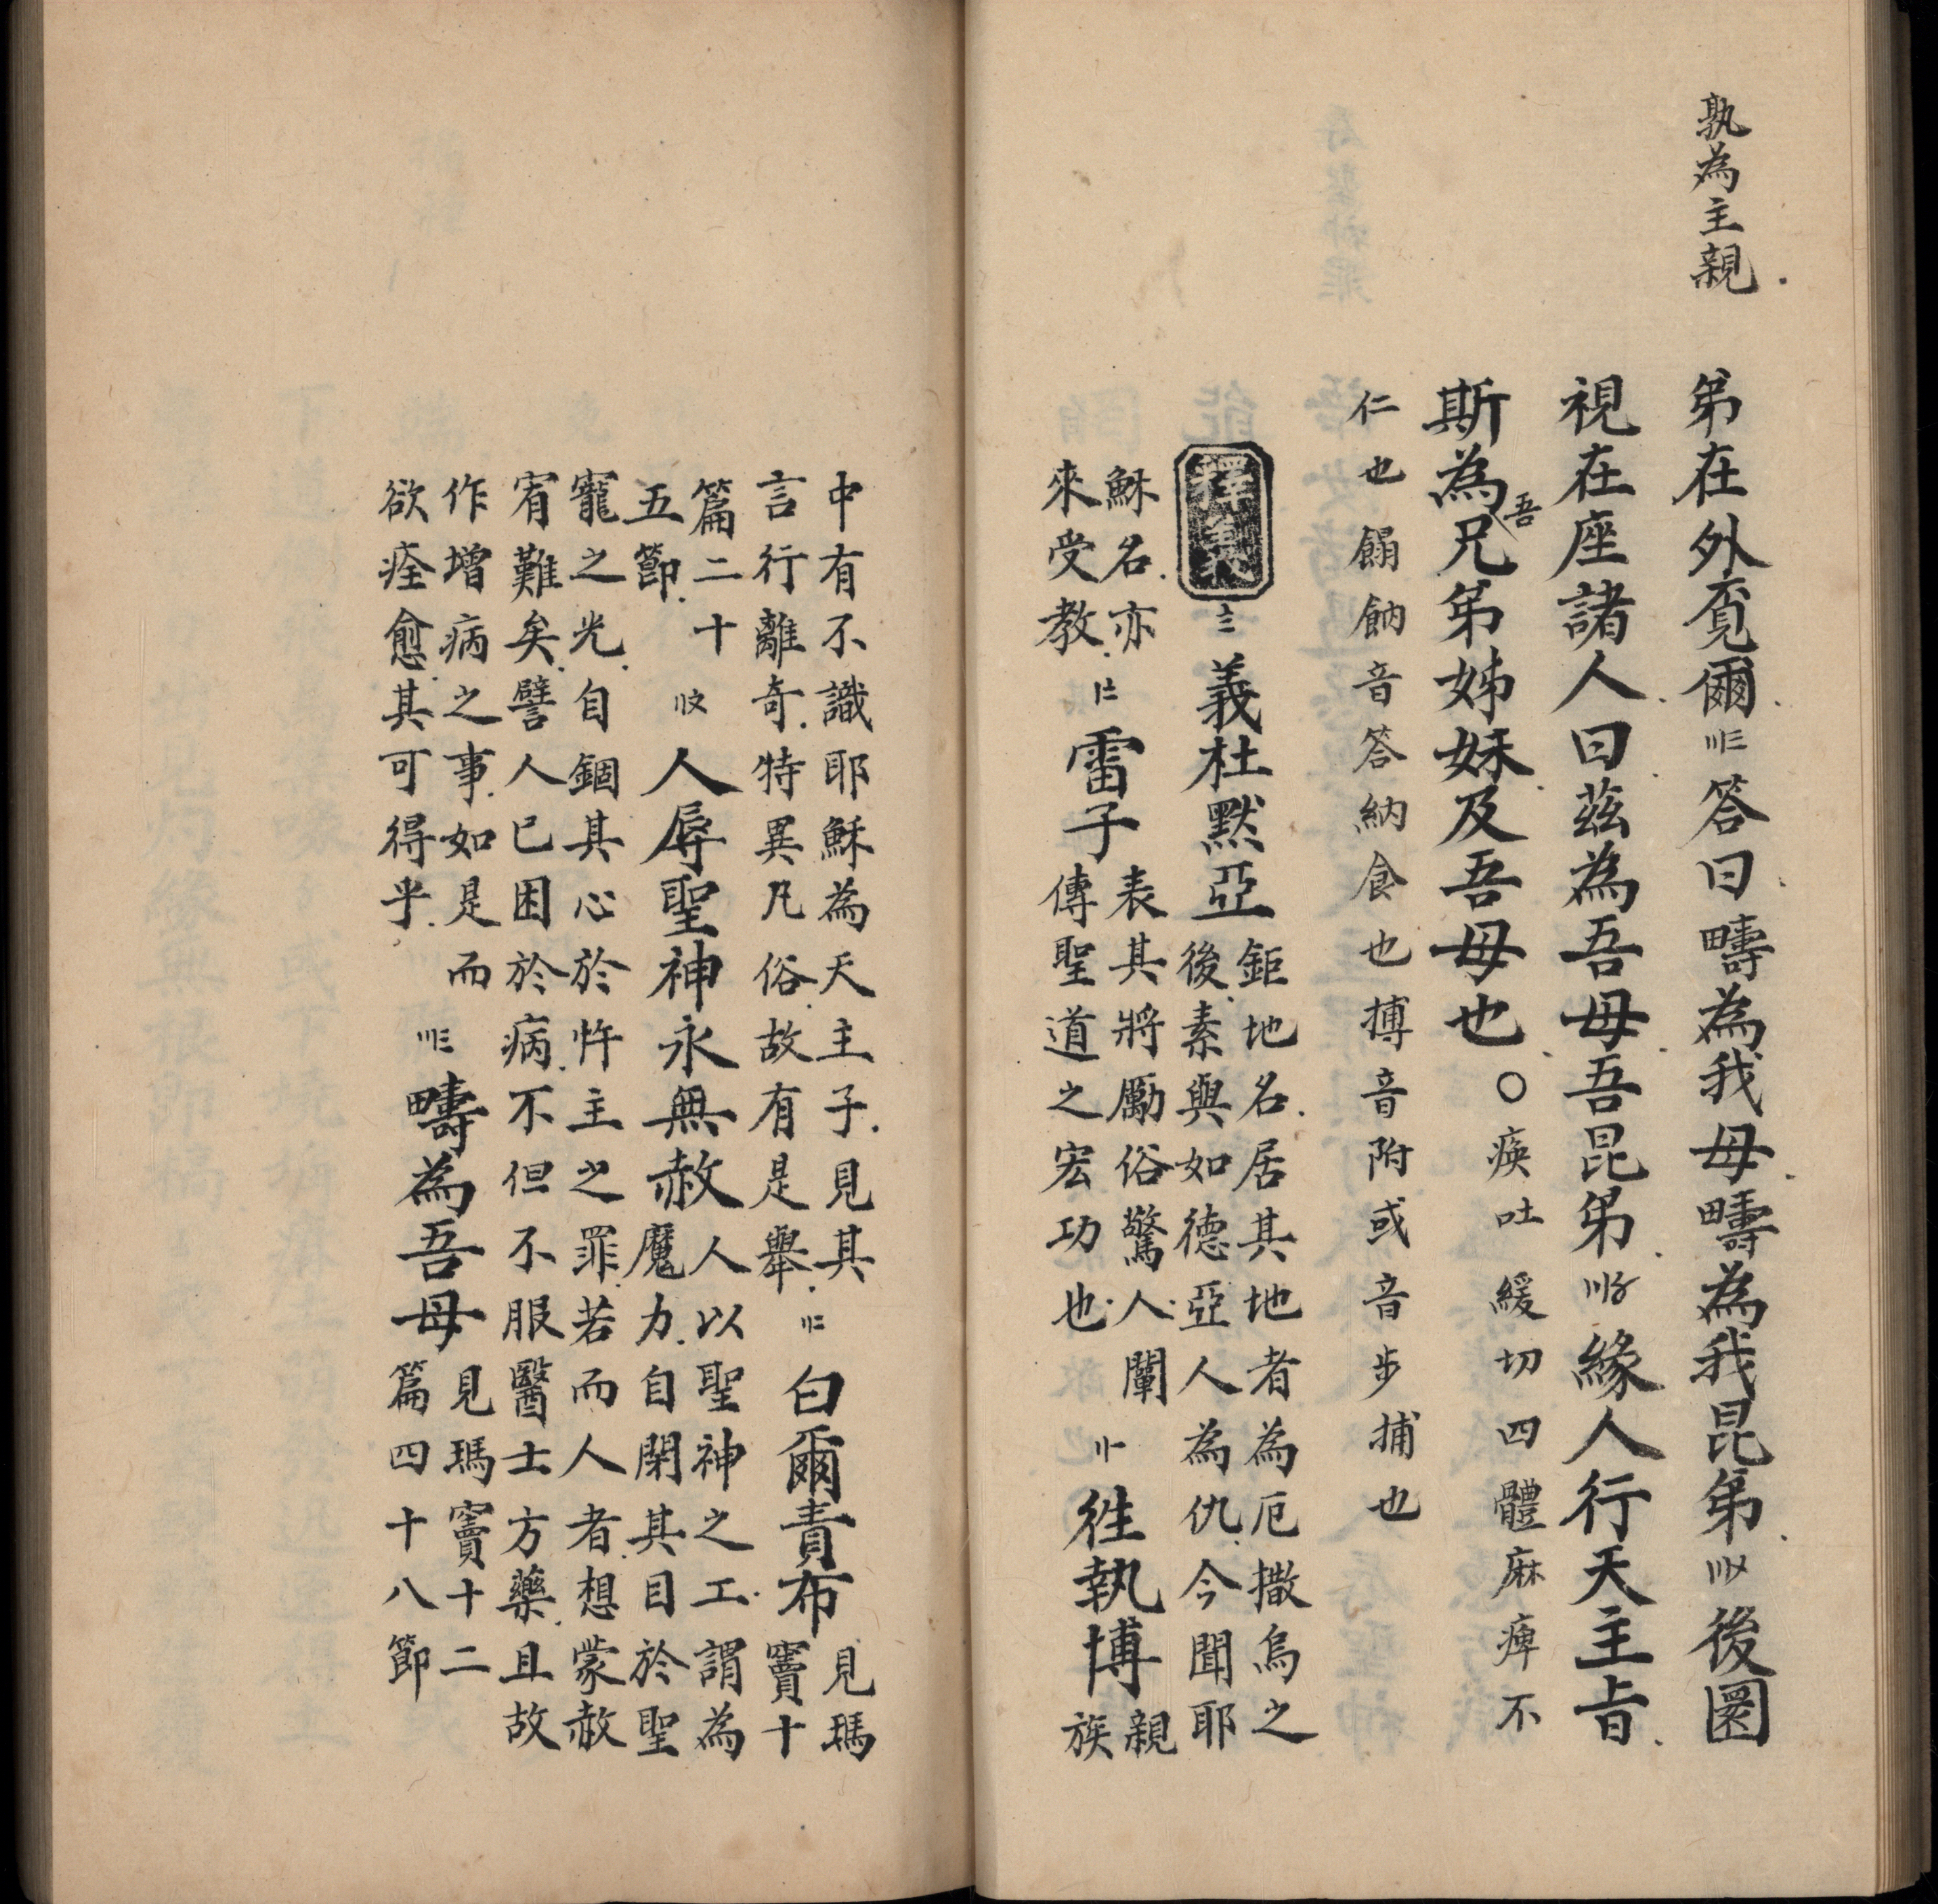 孰為主親
弟在外覔爾〣三答曰疇為我母疇為我昆弟〣〤後圜
視在座諸人曰茲為吾母吾昆弟〣〥緣人行天主旨
斯為吾兄弟姊妹及吾母也〇瘓吐緩切四體麻痺不
仁也餲餉音答納食也摶音附或音步捕也
釋義三義杜默亞鉅地名居其地者為厄撒烏之
後素與如德亞人為仇今聞耶
穌名亦
來受教雷子表其將勵俗驚人闡
傳聖道之宏功也徃執博親
族
中有不識耶穌為天主子見其
言行離奇特異凡俗故有是舉〣二白爾責布見瑪
竇十
篇二十
五節人辱聖神永無赦人以聖神之工謂為
魔力自閉其目於聖
寵之光自錮其心於忤主之罪若而人者想蒙赦
宥難矣譬人已困於病不但不服醫士方藥且故
作增病之事如是而
欲痊愈其可得乎〣三疇為吾母見瑪竇十二
篇四十八節